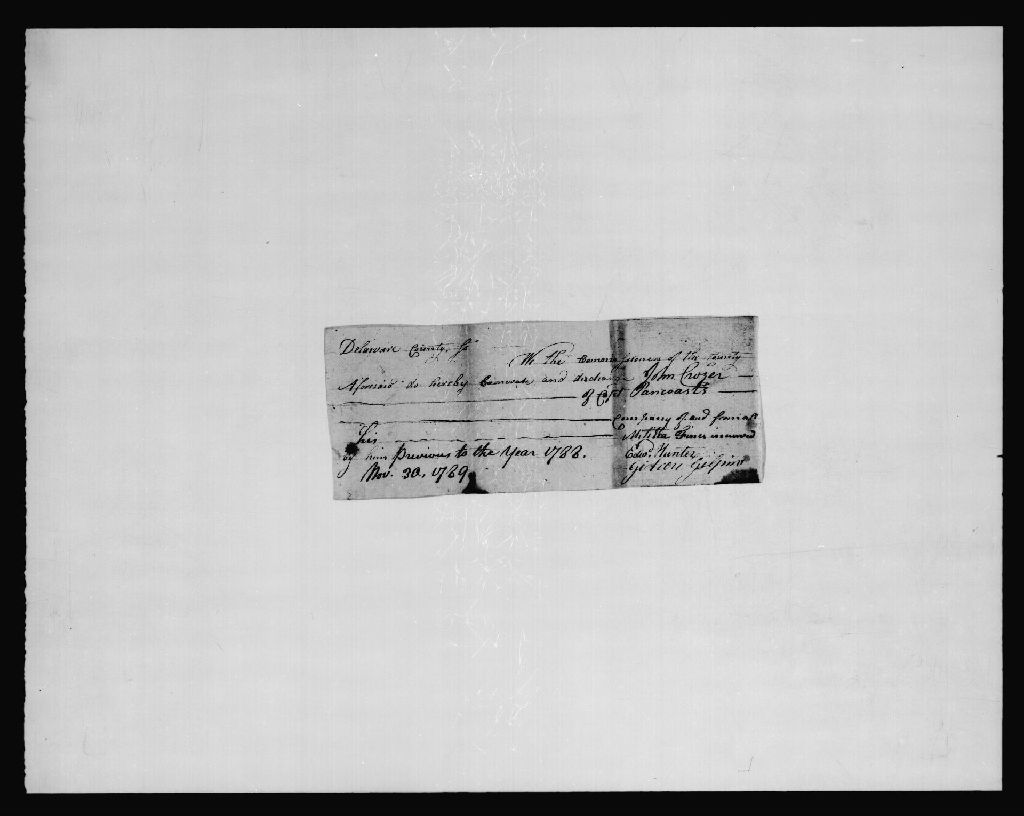 Delaware County, Ss
We the Commissioners of the County
Aforesaid do hereby Exonerate and discharge John Crozer
of Capt Pancoasts
Company of and from all
his Militia Fines incurred
by him previous to the Year 1788.
Nov. 30, 1789 Edwd. Hunter
Gideon Gilpin